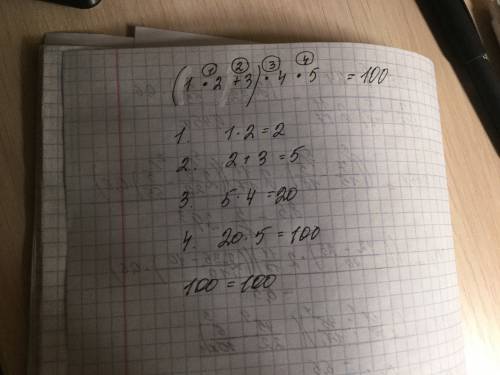 ① ② ③ ④
(1 · 2 + 3) · 4 · 5 = 100
1. 1 · 2 = 2
2. 2 + 3 = 5
3. 5 · 4 = 20
4. 20 · 5 = 100
100 = 100